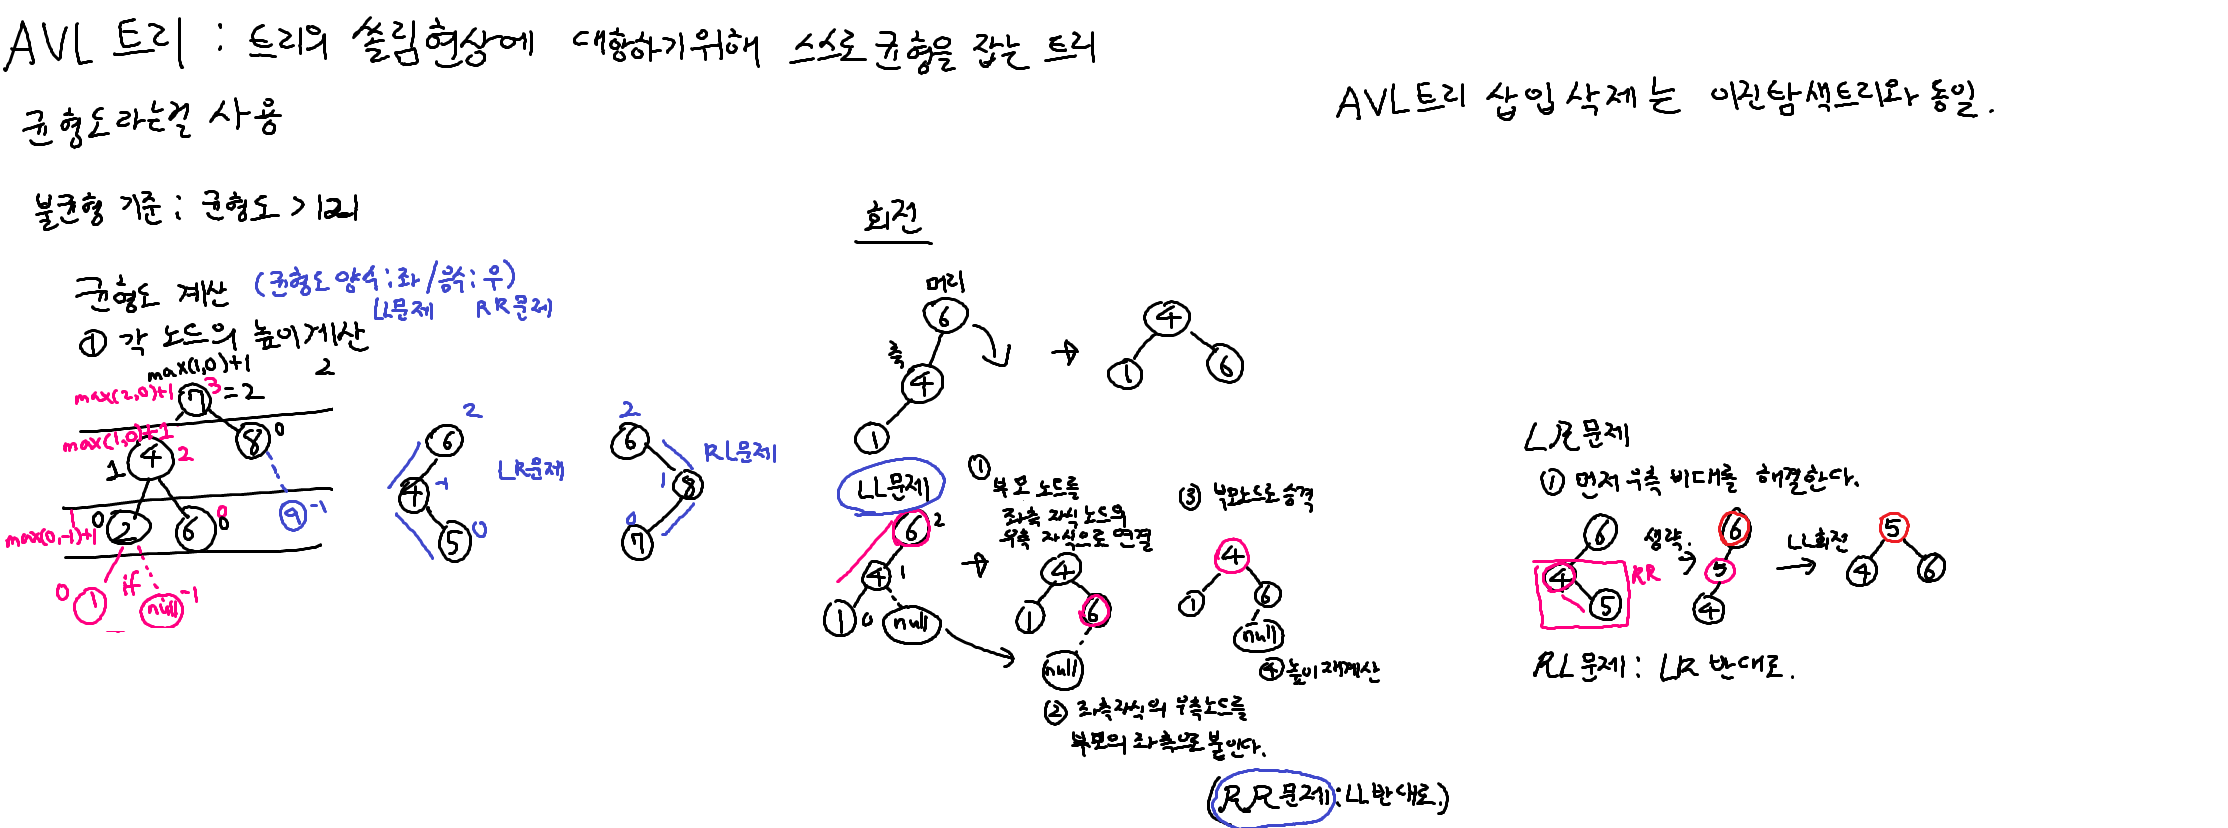 AVL 트리 : 트리의 쏠림현상에 대항하기위해 스스로 균형을 잡는 트리
균형도라는걸 사용
AVL트리 삽입 삭제는 이진탐색트리와 동일.
불균형 기준 : 균형도 > |2|
균형도 계산 (균형도 양수:좌/음수:우)
LL문제 RR문제
① 각 노드의 높이계산
max(1,0)+1
2
max(2,0)+1 7 3 =2
max(1,0)+1
8 0
1 4 2
max(0,-1)+1
0 2 6 8 9 -1
0 1 if null -1
2
6
4 -1
LR문제
5 0
2
6
RL문제
1 8
0
7
회전
머리
6
축
4
1
→
4
1 6
LL문제
6 2
4 1
1 0 null
①
부모 노드를
좌측 자식노드의
우측 자식으로 연결
4
1 6
null
② 좌측자식의 우측노드를
부모의 좌측으로 붙인다.
③ 부모노드로 승격
4
1 6
null
④ 높이 재계산
(RR문제 : LL반대로.)
LR문제
① 먼저 우측 비대를 해결한다.
6
4 RR
5
생략.
→
6
5
4
LL회전
→
5
4 6
RL문제 : LR 반대로.